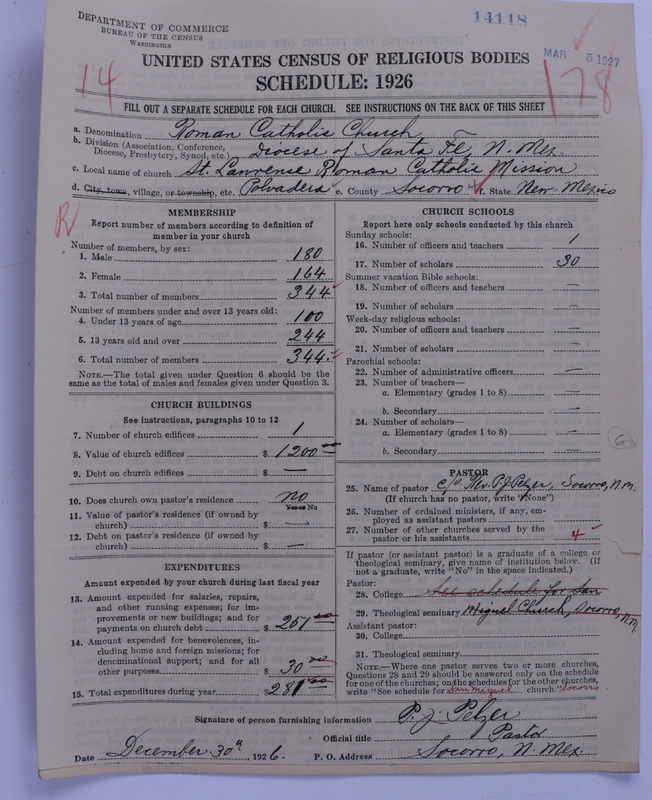 DEPARTMENT OF COMMERCE
BUREAU OF THE CENSUS
WASHINGTON
14118
MAR 5 1927
UNITED STATES CENSUS OF RELIGIOUS BODIES
SCHEDULE: 1926
14
178
FILL OUT A SEPARATE SCHEDULE FOR EACH CHURCH. SEE INSTRUCTIONS ON THE BACK OF THIS SHEET
a. Denomination Roman Catholic Church
b. Division (Association, Conference, Diocese, Presbytery, Synod, etc.) Diocese of Santa Fe, N. Mex.
c. Local name of church St. Lawrence Roman Catholic Mission
d. City, town, village, or township, etc. Polvadera e. County Socorro f. State New Mexico
R
MEMBERSHIP
Report number of members according to definition of
member in your church
Number of members, by sex:
1. Male 180
2. Female 164
3. Total number of members 344
Number of members under and over 13 years old:
4. Under 13 years of age 100
5. 13 years old and over 244
6. Total number of members 344
NOTE.—The total given under Question 6 should be
the same as the total of males and females given under Question 3.
CHURCH BUILDINGS
See instructions, paragraphs 10 to 12
7. Number of church edifices 1
8. Value of church edifices $ 1200
9. Debt on church edifices $ —
10. Does church own pastor's residence no
Yes or No
11. Value of pastor's residence (if owned by
church) $ —
12. Debt on pastor's residence (if owned by
church) $ —
EXPENDITURES
Amount expended by your church during last fiscal year
13. Amount expended for salaries, repairs,
and other running expenses; for im-
provements or new buildings; and for
payments on church debt $ 251
14. Amount expended for benevolences, in-
cluding home and foreign missions; for
denominational support; and for all
other purposes $ 30
15. Total expenditures during year $ 281
CHURCH SCHOOLS
Report here only schools conducted by this church
Sunday schools:
16. Number of officers and teachers 1
17. Number of scholars 30
Summer vacation Bible schools:
18. Number of officers and teachers —
19. Number of scholars —
Week-day religious schools:
20. Number of officers and teachers —
21. Number of scholars —
Parochial schools:
22. Number of administrative officers —
23. Number of teachers—
a. Elementary (grades 1 to 8) —
b. Secondary —
24. Number of scholars—
a. Elementary (grades 1 to 8) —
b. Secondary —
PASTOR
25. Name of pastor c/o Rev. P. J. Pelzer, Socorro, N.M.
(If church has no pastor, write "None")
26. Number of ordained ministers, if any, em-
ployed as assistant pastors
27. Number of other churches served by the
pastor or his assistants 4
If pastor (or assistant pastor) is a graduate of a college or
theological seminary, give name of institution below. (If
not a graduate, write "No" in the space indicated.)
Pastor:
28. College See schedule for San
29. Theological seminary Miguel Church, Socorro, N.M.
Assistant pastor:
30. College
31. Theological seminary
NOTE.—Where one pastor serves two or more churches,
Questions 28 and 29 should be answered only on the schedule
for one of the churches; on the schedules for the other churches,
write "See schedule for San Miguel church." Socorro
Signature of person furnishing information P. J. Pelzer
Official title Pastor
Date December 30th, 1926. P. O. Address Socorro, N. Mex